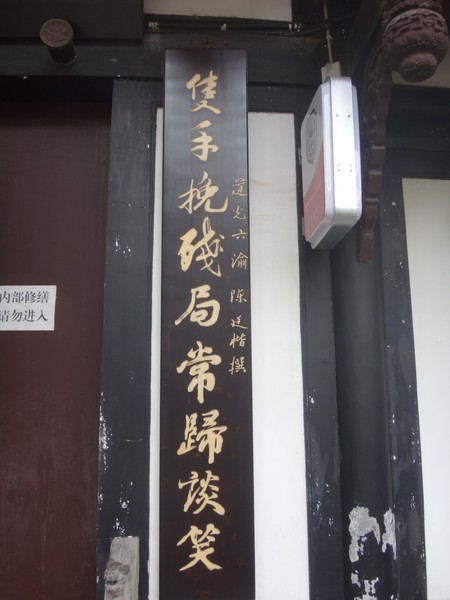 隻手挽殘局常歸談笑
道光六渝陳廷楷撰
内部修缮
请勿进入